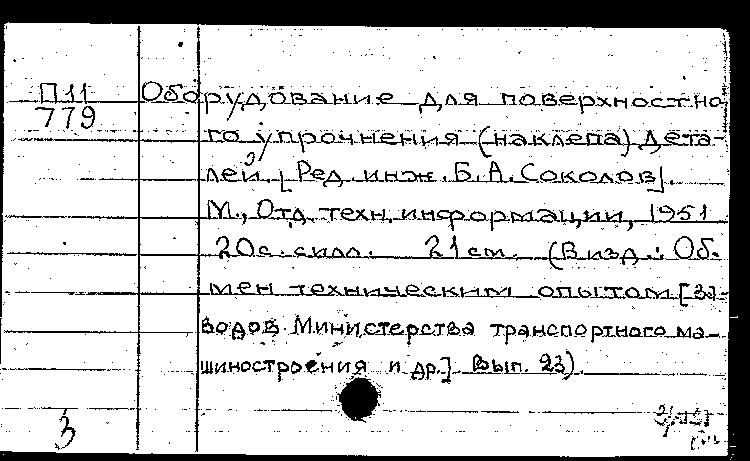 П11
779
Оборудование для поверхностно
го упрочнения (наклепа) дета-
лей. [Ред. инж. Б. А. Соколов].
М., Отд. техн. информации, 1951
20с. с илл. 21 см. (В изд.: Об-
мен техническим опытом [за-
водов Министерства транспортного ма-
шиностроения и др.] Вып. 23).
3